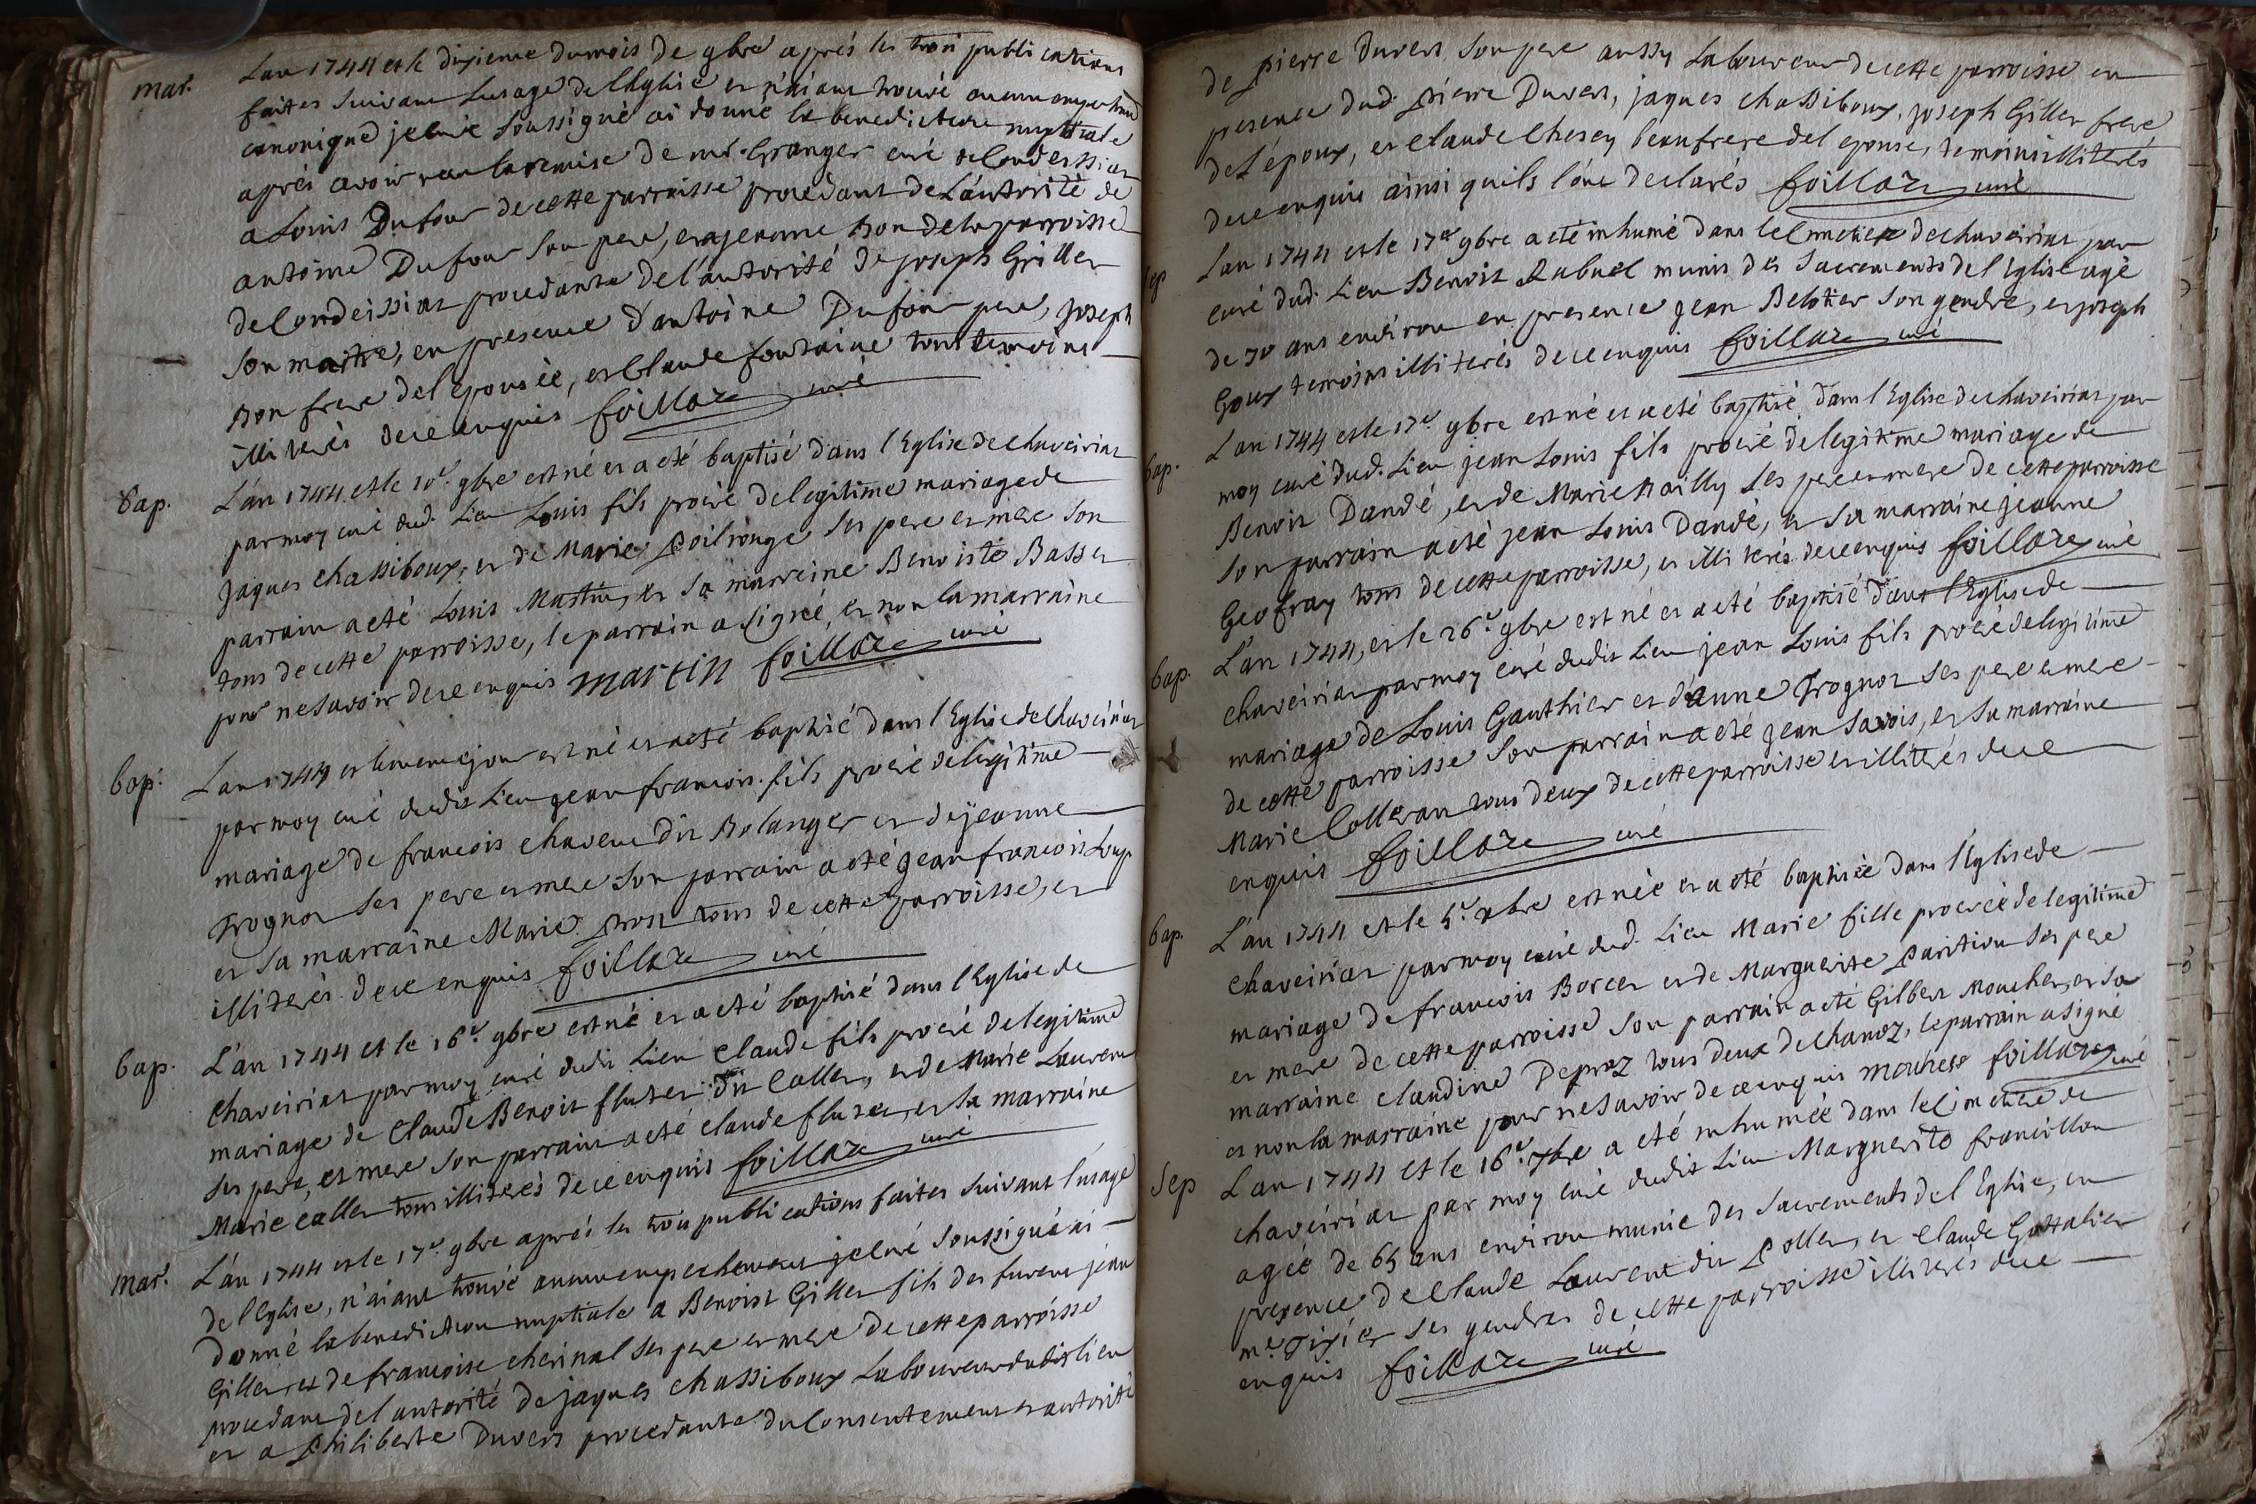 mar.
L'an 1744 et le dixieme du mois de 9bre aprés les trois publications
faites suivant l'usage de l'Eglise et n'aiant trouvé aucun
canonique je curé soussigné ai donné la benediction nuptiale
aprés avoir veu la remise de mr. Granger curé de Condeissiat
a Louis Dufour de cette parroisse procedant de l'autorité de
antoine Dufour son pere, et a jeanne Bon de la parroisse
de Condeissiat procedante de l'autorité de joseph Griller
son maitre, en presence d'antoine Dufour pere, joseph
Bon frere de l'epousée, et Claude fontaine tous temoins
illiterés de ce enquis foillaz curé
bap.
L'an 1744 et le 10e. 9bre est né et a eté baptisé dans l'Eglise de chaveiriat
par moy curé dud. Lieu Louis fils procréé de legitime mariage de
jaques chassiboux, et de Marie Poilrouge ses pere et mere son
parrain a eté Louis Martin, et sa marreine Benoiste Basset
tous de cette parroisse, le parrain a signé, et non la marraine
pour ne savoir de ce enquis martin foillaz curé
bap.
L'an 1744 et le meme jour est né et a eté baptisé dans l'Eglise de chaveiriat
par moy curé dudit Lieu jean francois fils procréé de legitime
mariage de francois chavent dit Bolanger et de jeanne
Trognot ses pere et mere son parrain a eté jean francois Loup
et sa marraine Marie Prost tous de cette parroisse, et
illiterés de ce enquis foillaz curé
bap.
L'an 1744 et le 16e. 9bre est né et a eté baptisé dans l'Eglise de
chaveiriat par moy curé dudit Lieu Claude fils procréé de legitime
mariage de Claude Benoit flutet dit Collet, et de Marie Laurent
ses pere, et mere son parrain a eté claude flutet, et sa marraine
Marie collet tous illiterés de ce enquis foillaz curé
mar.
L'an 1744 et le 17e. 9bre aprés les trois publications faites suivant l'usage
de l'Eglise, n'aiant trouvé aucun empechement je curé soussigné ai
donné la benediction nuptiale a Benoist Gillet fils des furent jean
Gillet, et de francoise cherinal ses pere et mere de cette parroisse
procedant de l'autorité de jaques chassiboux Laboureur dudit lieu
et a Philiberte Duvert procedante du Consentement et autorité
de pierre Duvert son pere aussy Laboureur de cette parroisse en
presence dud. Pierre Duvert, jaques chassiboux, joseph Gillet frere
de l'époux, et Claude Chosey beaufrere del epouse, temoins illiterés
de ce enquis ainsi quils l'ont declarés foillaz curé
sep
L'an 1744 et le 17e 9bre a eté inhumé dans le Cimetiere de chaveiriat par
curé dud. Lieu Benoit Rabuel munis des sacrements de l'Eglise agé
de 70 ans environ en presence jean Belotier son gendre, et joseph
Goux temoins illiterés de ce enquis foillaz curé
bap.
L'an 1744 et le 17e. 9bre est né et a eté baptisé dans l'Eglise de chaveiriat par
moy curé dud. Lieu jean Louis fils procréé de legitime mariage de
Benoit Dandé, et de Marie Bailly ses pere et mere de cette parroisse
son parrain a eté jean Louis Dandé, et sa marraine jeanne
Geofray tous de cette parroisse, et illiterés de ce enquis foillaz curé
bap.
L'an 1744, et le 26e. 9bre est né et a eté baptisé dans l'Eglise de
chaveiriat par moy curé dudit Lieu jean Louis fils procréé de legitime
mariage de Louis Gauthier et d'anne Trognot ses pere et mere
de cette parroisse son parrain a eté jean Savois, et sa marraine
Marie Colleran tous deux de cette parroisse et illiterés de ce
enquis foillaz curé
bap.
L'an 1744 et le 5e. xbre est née et a eté baptisée dans l'Eglise de
chaveiriat par moy curé dud. Lieu Marie fille procréée de legitime
mariage de francois Borcet et de Marguerite Paritiou ses pere
et mere de cette parroisse son parrain a eté Gilbert Moucher, et sa
marraine claudine Depraz tous deux de chanoz, le parrain a signé
et non la marraine pour ne savoir de ce enquis mouchers foillaz curé
Sep
L'an 1744 et le 16e. xbre a eté inhumée dans le Cimetiere de
chaveiriat par moy curé dudit Lieu Marguerite francillon
agée de 65 ans environ munie des sacrements de l'Eglise, en
presence de Claude Laurent dit Pollet, et Claude Gottalier
ses gendres de cette parroisse illiterés de ce
enquis foillaz curé